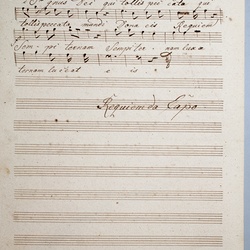 Agnus Dei qui tollis peccata qui
tollis peccata mundi Dona eis Requiem
Sempiternam Sempiter nam lux æ
ternam luceat e is
Requiem da Capo